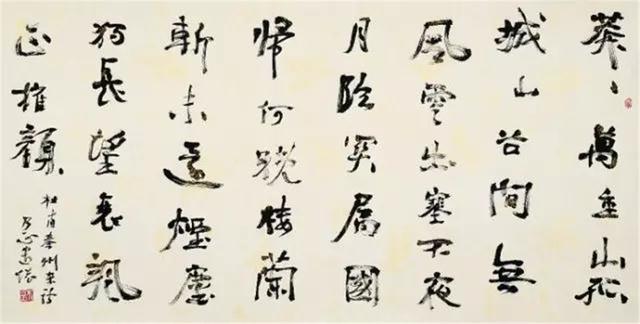 莽々萬重山孤
城山谷間無
風雲出塞不夜
月臨關屬國
歸何晚樓蘭
斬未還煙塵
獨長望衰颯
正摧顏
杜甫秦州雜詩